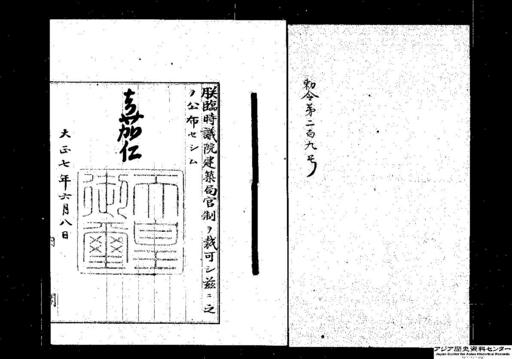 勅令第二百九号
朕臨時議院建築局官制ヲ裁可シ茲ニ之
ヲ公布セシム
嘉仁
天皇
御璽
大正七年六月八日
アジア歴史資料センター
Japan Center for Asian Historical Records